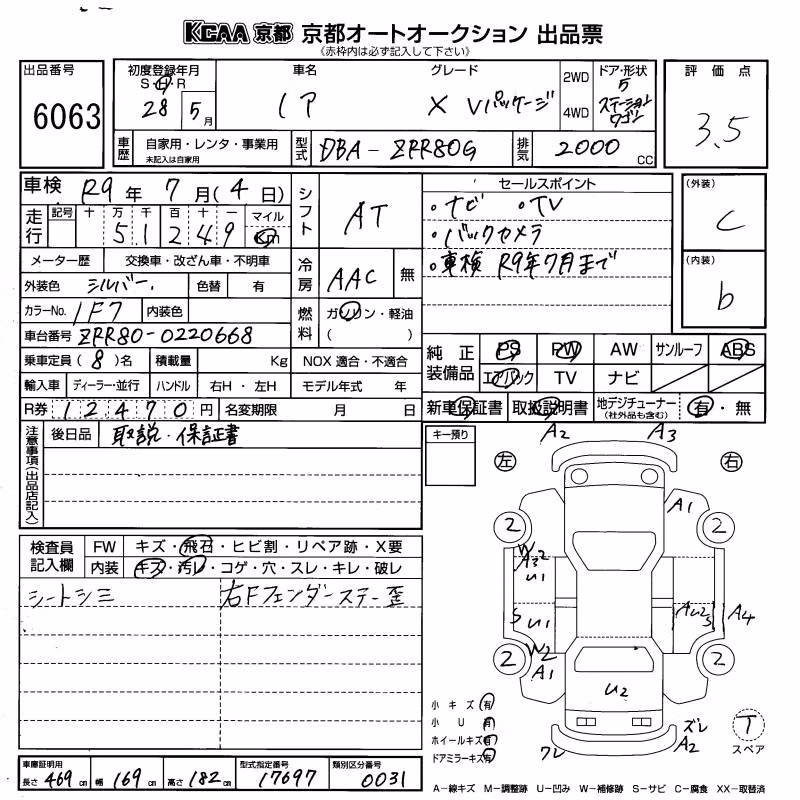 KCAA 京都 京都オートオークション 出品票
(赤枠内は必ず記入して下さい)
出品番号
6063
初度登録年月
S・H・R
28 5月
車名
ノア
グレード
X Vパッケージ
2WD
4WD
ドア・形状
5
ステーション
ワゴン
評価点
3.5
車歴
自家用・レンタ・事業用
未記入は自家用
型式
DBA-ZRR80G
排気
2000 CC
車検 R9年 7月(4日)
走行
記号 十 万 千 百 十 一 マイル
5 1 2 4 9 km
シフト
AT
セールスポイント
・ナビ ・TV
・バックカメラ
・車検 R9年7月まで
(外装)
C
(内装)
b
メーター歴 交換車・改ざん車・不明車
外装色 シルバー 色替 有
カラーNo. 1F7 内装色
車台番号 ZRR80-0220668
冷房
AAC 無
燃料
ガソリン・軽油
( )
乗車定員(8)名 積載量 Kg NOX 適合・不適合
輸入車 ディーラー・並行 ハンドル 右H・左H モデル年式 年
R券 12470円 名変期限 月 日
純正装備品
PS PW AW サンルーフ ABS
エアバック TV ナビ
新車保証書 取扱説明書 地デジチューナー
(社外品も含む)
有・無
注意事項(出品店記入)
後日品 取説・保証書
キー預り
左
右
A2 A3
A1
2 2
W A32 U1
S U1
W2 A1
AU2 S A4
2 2
U2
ズレ
A2
ワレ
T
スペア
検査員記入欄
FW キズ・飛石・ヒビ割・リペア跡・X要
内装 キズ・汚レ・コゲ・穴・スレ・キレ・破レ
シートシミ
右Fフェンダーステー歪
小キズ 有
小U 有
ホイールキズ 有
ドアミラーキズ 有
車庫証明用
長さ 469cm 幅 169cm 高さ 182cm
型式指定番号
17697
類別区分番号
0031
A-線キズ M-調整跡 U-凹み W-補修跡 S-サビ C-腐食 XX-取替済